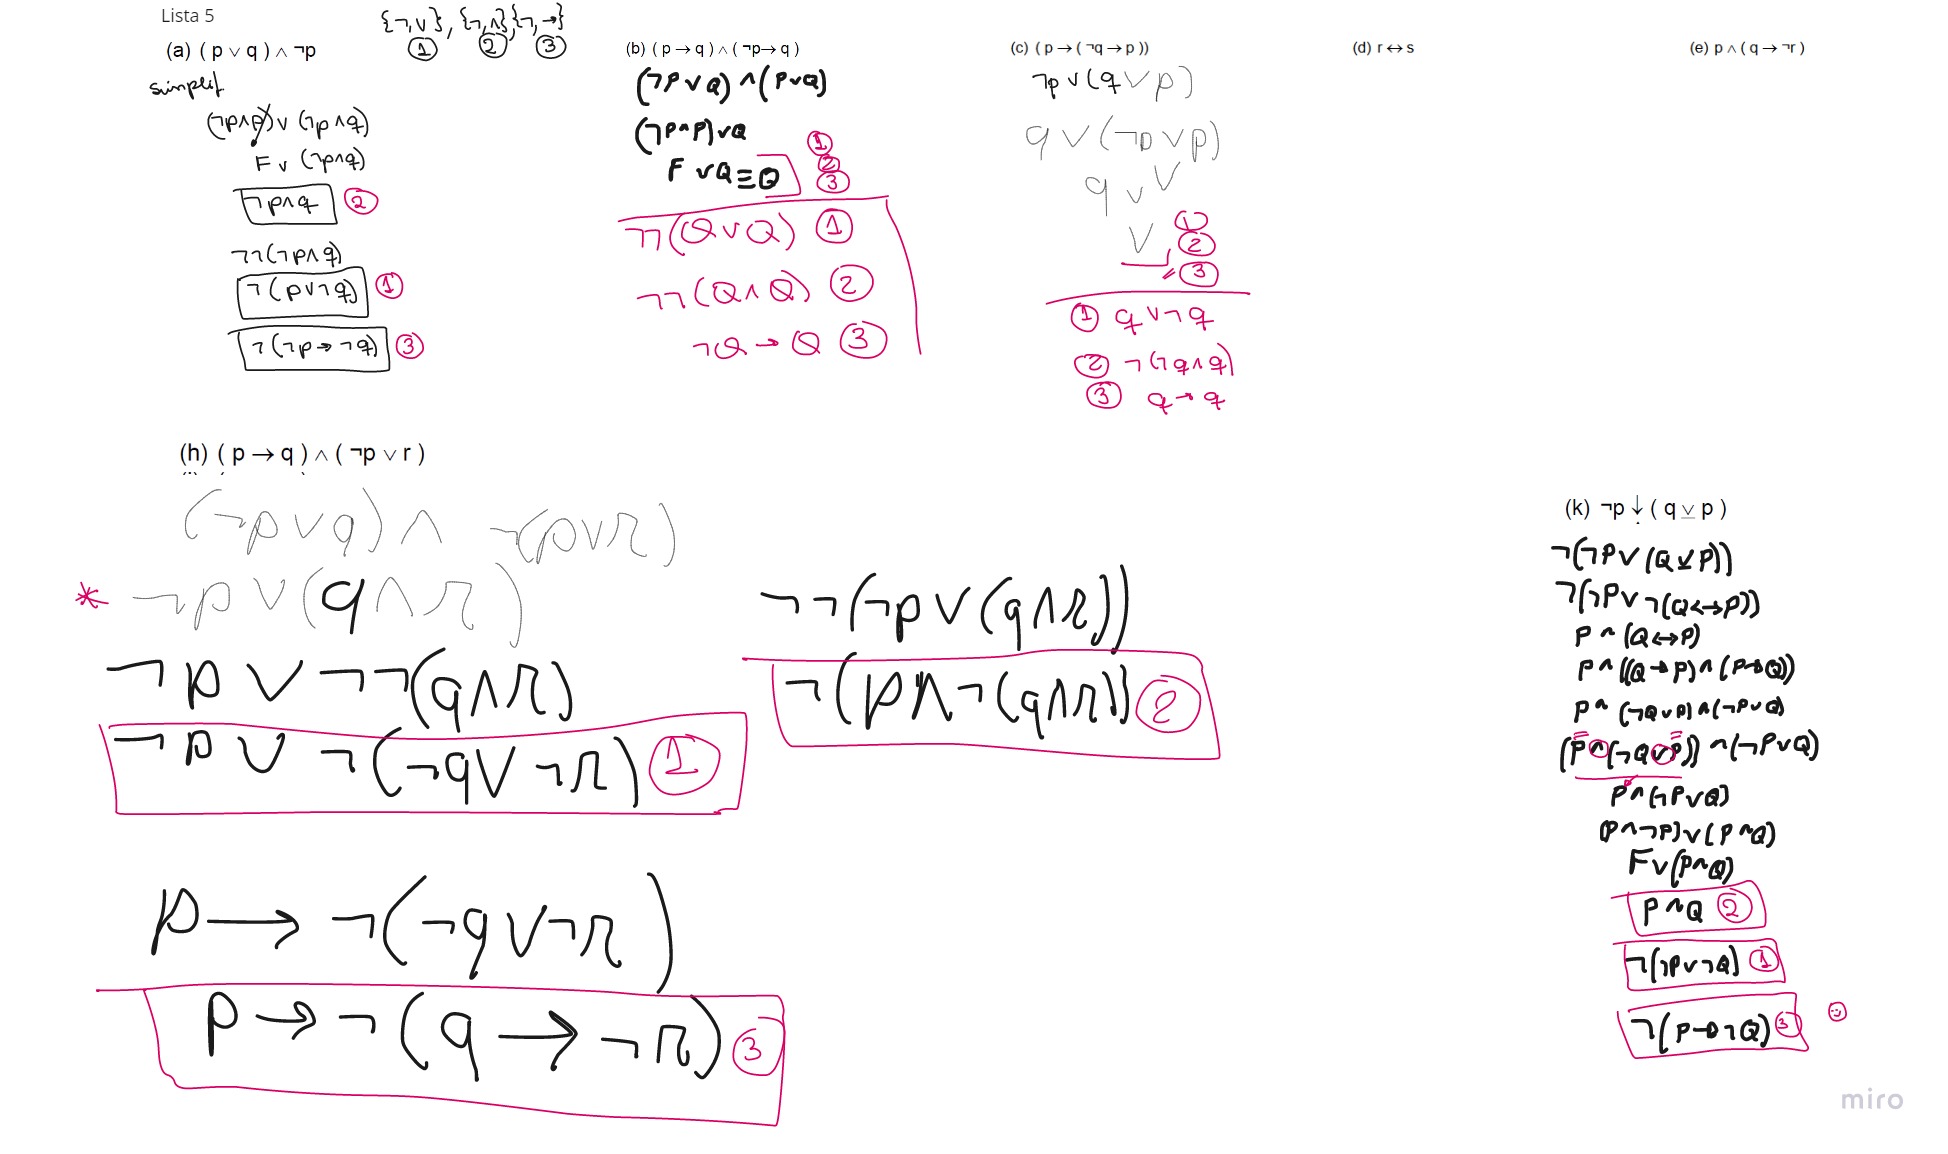 Lista 5
{¬,∨}, {¬,∧} {¬,→}
① ② ③
(a) ( p ∨ q ) ∧ ¬p
simplif
(¬p∧p) ∨ (¬p∧q)
F ∨ (¬p∧q)
¬p∧q ②
¬¬(¬p∧q)
¬(p∨¬q) ①
¬(¬p→¬q) ③
(b) ( p → q ) ∧ ( ¬p→ q )
(¬P∨Q) ∧ (P∨Q)
(¬P∧P)∨Q
F ∨Q ≡ Q ① ② ③
¬¬(Q∨Q) ①
¬¬(Q∧Q) ②
¬Q → Q ③
(c) ( p → ( ¬q → p ))
¬p ∨ (q ∨ p)
q ∨ (¬p ∨ p)
q ∨ V
V ① ② ③
① q ∨ ¬q
② ¬(¬q ∧ q)
③ q → q
(d) r ↔ s
(e) p ∧ ( q → ¬r )
(h) ( p → q ) ∧ ( ¬p ∨ r )
(¬p∨q) ∧ ¬(p∨r)
* ¬p ∨ (q ∧ r)
¬p ∨ ¬¬(q∧r)
¬p ∨ ¬(¬q∨¬r) ①
¬¬(¬p ∨ (q∧r))
¬(p∧¬(q∧r)) ②
p → ¬(¬q∨¬r)
p → ¬(q → ¬r) ③
(k) ¬p ↓ ( q ⊻ p )
¬(¬P∨ (Q⊻P))
¬(¬P∨ ¬(Q↔P))
P ∧ (Q↔P)
P ∧ ((Q→P) ∧ (P→Q))
P ∧ (¬Q∨P) ∧ (¬P∨Q)
(P ∧ (¬Q∨P)) ∧ (¬P∨Q)
P ∧ (¬P∨Q)
(P∧¬P)∨(P∧Q)
F∨(P∧Q)
P∧Q ②
¬(¬P∨¬Q) ①
¬(P→¬Q) ③
miro